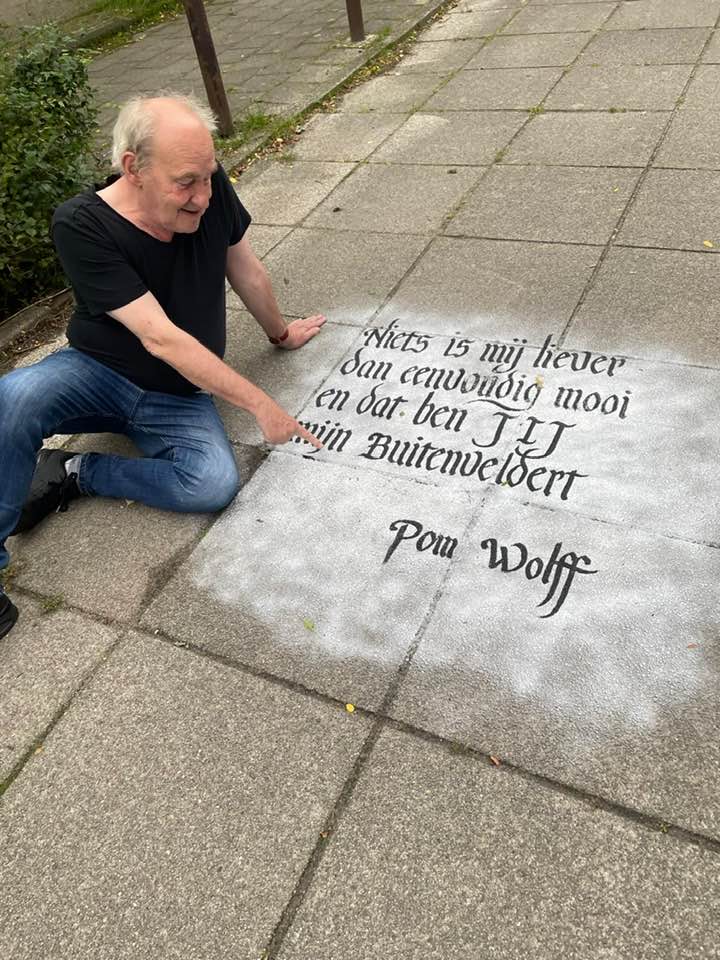 Niets is mij liever
dan eenvoudig mooi
en dat ben JIJ
mijn Buitenveldert
Pom Wolff